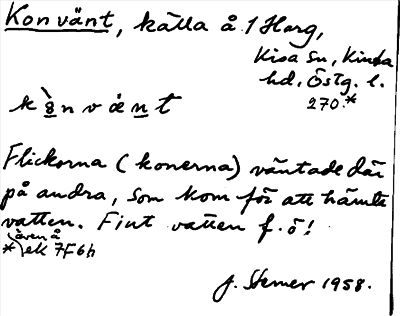 Konvänt, källa å 1 Harg,
Kisa sn, Kinda
hd, Östg. l.
270.*
Flickorna (konerna) väntade där
på andra, som kom för att hämta
vatten. Fint vatten f.ö!
även å
*) ek 7F6h
J. Sterner 1958.